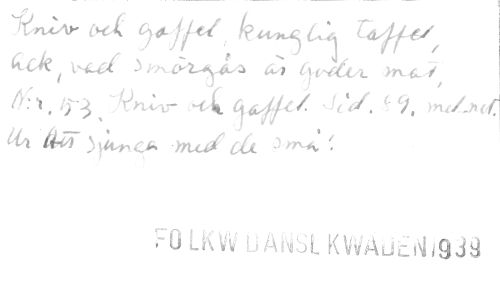 Kniv och gaffel, kunglig taffel,
ack, vad smörgås är goder mat,
N:r. 153. Kniv och gaffel. Sid. 89. med not.
Ur Att sjunga med de små!
FOLKW DANSLKWADEN 1939